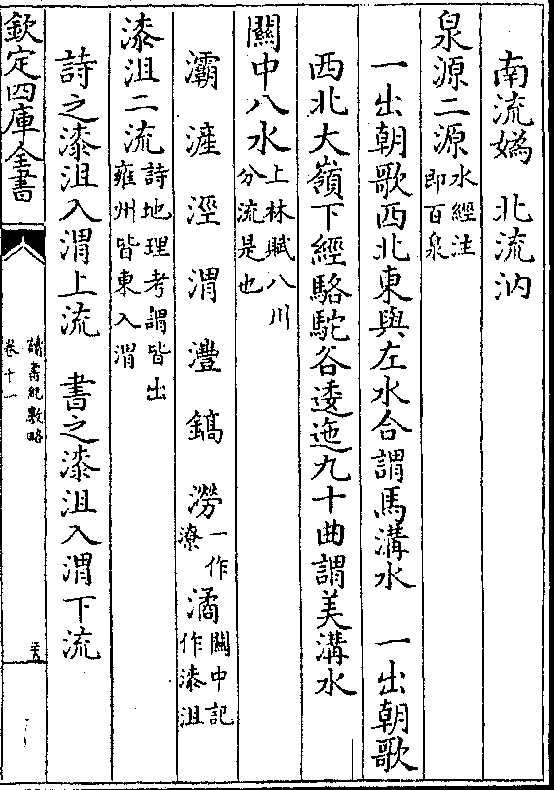 南流媯 北流汭
泉源二源水經注即百泉
一出朝歌西北東與左水合謂馬溝水 一出朝歌
西北大嶺下經駱駝谷逶迤九十曲謂美溝水
關中八水上林賦八川分流是也
灞 滻 涇 渭 灃 鎬 澇一作潦 潏關中記作漆沮
漆沮二流詩地理考謂皆出雍州皆東入渭
詩之漆沮入渭上流 書之漆沮入渭下流
欽定四庫全書
讀書紀數略
卷十一